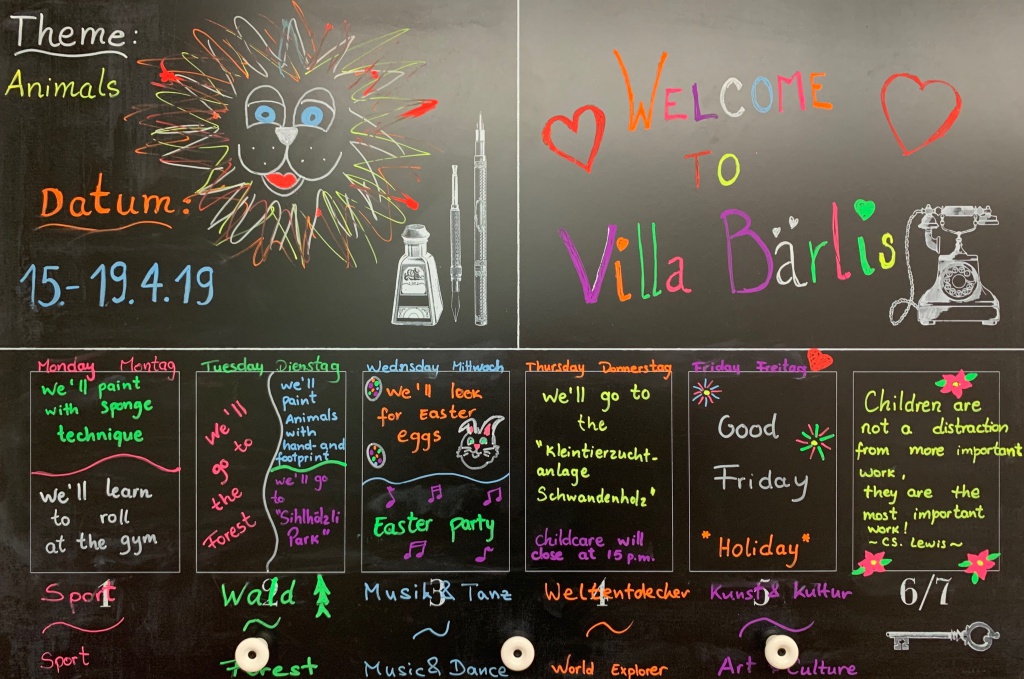 Theme:
Animals
Datum:
15.-19.4.19
WELCOME
TO
Villa Bärlis
Monday Montag
we'll paint
with sponge
technique
we'll learn
to roll
at the gym
1
Sport
Sport
Tuesday Dienstag
we'll
go to
the
Forest
we'll
paint
Animals
with
hand-and
footprint
we'll go
to
"Sihlhölzli
Park"
2
Wald
Forest
Wednsday Mittwoch
we'll look
for Easter
eggs
Easter party
3
Musik & Tanz
Music & Dance
Thursday Donnerstag
we'll go to
the
"Kleintierzucht-
anlage
Schwandenholz"
childcare will
close at 15 p.m.
4
Weltentdecker
World Explorer
Friday Freitag
Good
Friday
*Holiday*
5
Kunst & Kultur
Art & Culture
Children are
not a distraction
from more important
work,
they are the
most important
work!
~CS. Lewis~
6/7